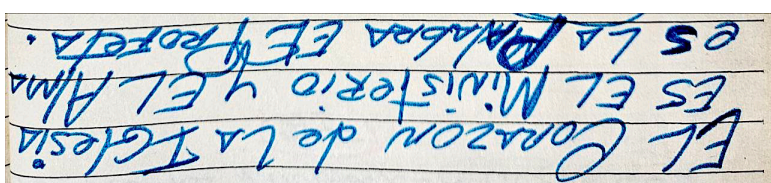 EL CORAZON de LA IGlesia
ES EL MiNiSTeRiO y EL AlMA
es LA PAlabRA EL PROFeTA.